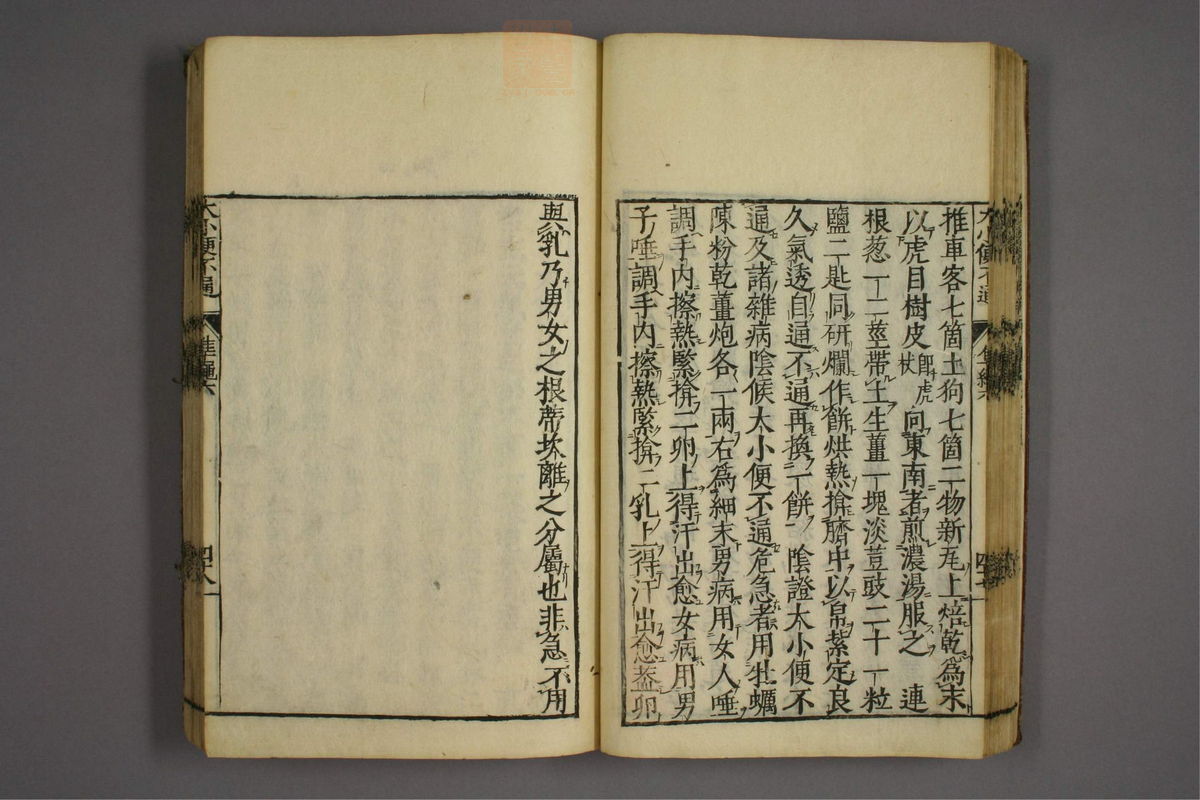 推車客七箇土狗七箇二物新瓦上焙乾為末
以虎目樹皮即虎杖向東南者煎濃湯服之 連
根葱一二莖帶土生薑一塊淡荳豉二十一粒
鹽二匙同研爛作餅烘熱揜臍中以帛紮定良
久氣透自通不通再換一餅 陰證大小便不
通及諸雜病陰候大小便不通危急者用牡蠣
陳粉乾薑炮各一兩右為細末男病用女人唾
調手內擦熱緊揜二卵上得汗出愈女病用男
子唾調手內擦熱緊揜二乳上得汗出愈蓋卵
與乳乃男女之根蒂坎離之分屬也非急不用
大小便不通
四七
大小便不通
準繩六
四八